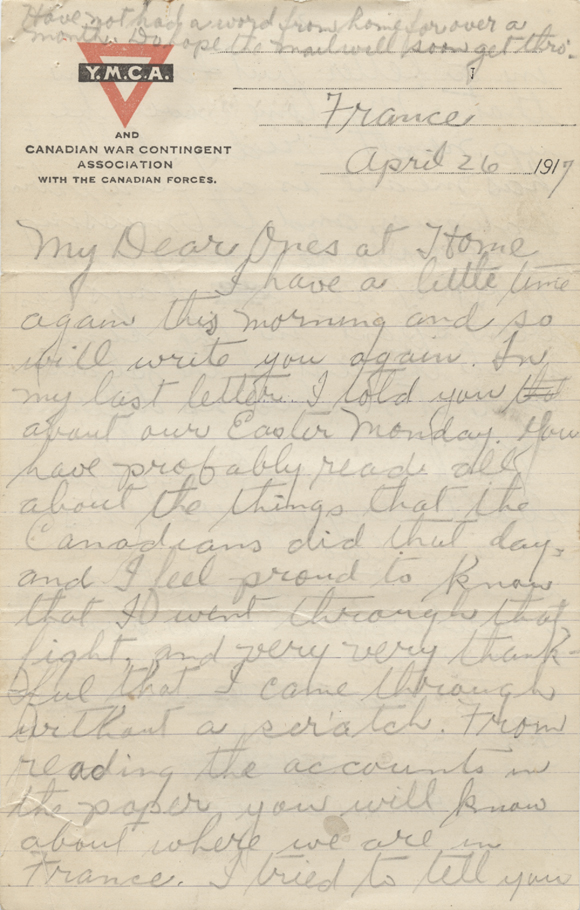 Have not had a word from home for over a
month. Do hope the mail will soon get thro'.
Y.M.C.A.
AND
CANADIAN WAR CONTINGENT
ASSOCIATION
WITH THE CANADIAN FORCES.
France
April 26 1917
My Dear Ones at Home
I have a little time
again this morning and so
will write you again. In
my last letter I told you
about our Easter Monday. You
have probably read all
about the things that the
Canadians did that day,
and I feel proud to know
that I went through that
fight, and very very thank-
ful that I came through
without a scratch. From
reading the accounts in
the paper you will know
about where we are in
France. I tried to tell you